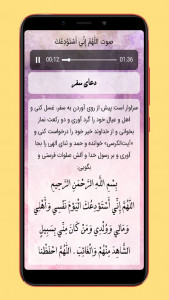 صوت اللَّهُمَّ إِنِّي أَسْتَوْدِعُكَ
00:12
01:36
دعای سفر
سزاوار است پیش از روی آوردن به سفر، غسل کنی و
اهل و عیال خود را گرد آوری و دو رکعت نماز
بخوانی و از خداوند خیر خود را درخواست کنی و
«آیت‌الکرسی» خوانده و حمد و ثنای الهی را بجا
آوری و بر رسول خدا و آلش صلوات فرستی و
بگوئی:
بِسْمِ اللَّهِ الرَّحْمَنِ الرَّحِيمِ
اللَّهُمَّ إِنِّي أَسْتَوْدِعُكَ الْيَوْمَ نَفْسِي وَأَهْلِي
وَمَالِي وَوُلْدِي وَمَنْ كَانَ مِنِّي بِسَبِيلٍ
الشَّاهِدَ مِنْهُمْ وَالْغَائِبَ ، اللَّهُمَّ احْفَظْنَا